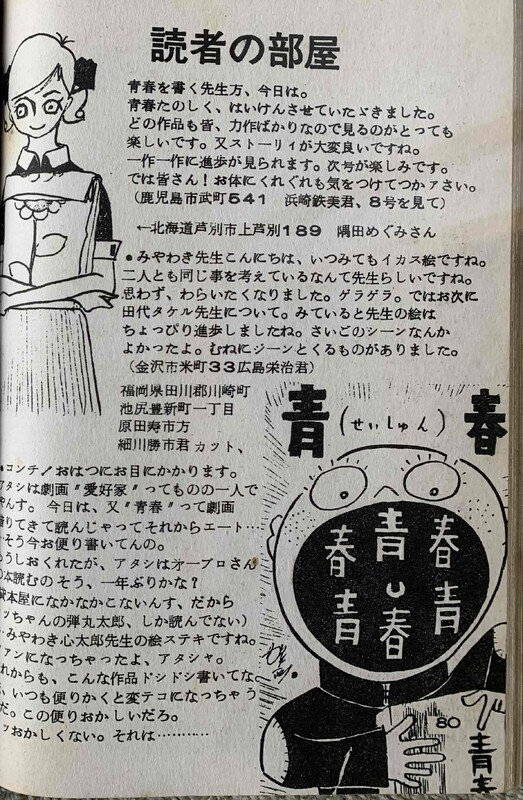 読者の部屋
青春を書く先生方、今日は。
青春たのしく、はいけんさせていたゞきました。
どの作品も皆、力作ばかりなので見るのがとっても
楽しいです。又ストーリィが大変良いですね。
一作一作に進歩が見られます。次号が楽しみです。
では皆さん！お体にくれぐれも気をつけてつかァさい。
(鹿児島市武町541 浜崎鉄美君、8号を見て)
←北海道芦別市上芦別189 隅田めぐみさん
•みやわき先生こんにちは、いつみてもイカス絵ですね。
二人とも同じ事を考えているなんて先生らしいですね。
思わず、わらいたくなりました。ゲラゲラ。ではお次に
田代タケル先生について。みていると先生の絵は
ちょっぴり進歩しましたね。さいごのシーンなんか
よかったよ。むねにジーンとくるものがありました。
(金沢市米町33広島栄治君)
福岡県田川郡川崎町
池尻豊新町一丁目
原田寿市方
細川勝市君カット、
•コンチ！おはつにお目にかかります。
アタシは劇画〝愛好家〟ってものの一人で
やんす。今日は、又〝青春〟って劇画
借りてきて読んじゃってそれからエート…
…そう今お便り書いてんの。
もうしおくれたが、アタシは才一プロさん
の本読むのそう、一年ぶりかな？
貸本屋になかなかこないんす、だから
ッちゃんの弾丸太郎、しか読んでない)
…みやわき心太郎先生の絵ステキですね。
ファンになっちゃったよ、アタシャ。
れからも、こんな作品ドシドシ書いてな
、いつも便りかくと変テコになっちゃう
だ。この便りおかしいだろ。
ッおかしくない。それは…………
青春
(せいしゅん)
青春
青春
春青
80
青春